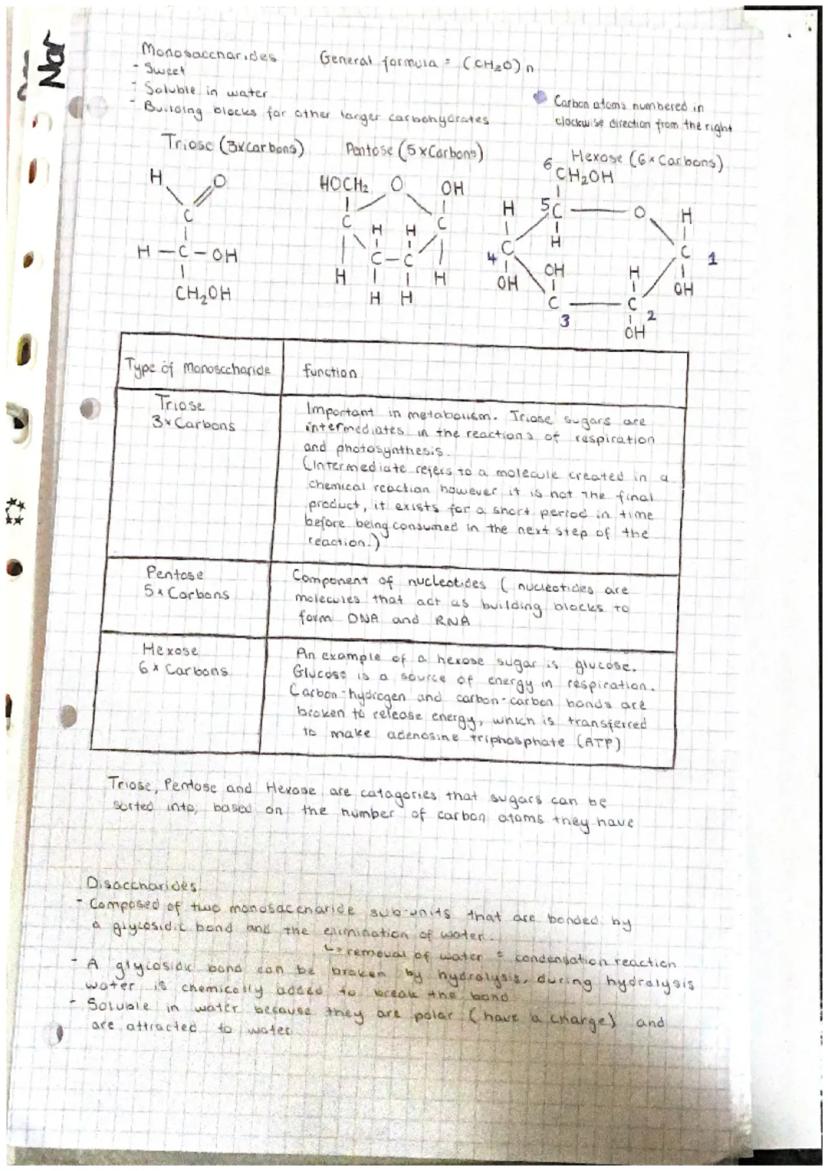 Nar
Monosaccharides General formula = (CH₂O)n
- Sweet
- Soluble in water
- Building blocks for other larger carbohydrates
Carbon atoms numbered in
clockwise direction from the right
Triose (3xCarbons) Pentose (5xCarbons) Hexose (6xCarbons)
H O
C
H - C - OH
CH₂OH
HOCH₂ O OH
C H H C
C - C
H H
H H
6 CH₂OH
H 5C O H
C H C 1
4 OH OH H OH
C C
3 2
OH
Type of Monosccharide function
Triose
3xCarbons
Important in metabolism. Triose sugars are
intermediates in the reactions of respiration
and photosynthesis.
(Intermediate refers to a molecule created in a
chemical reaction however it is not the final
product, it exists for a short period in time
before being consumed in the next step of the
reaction.)
Pentose
5xCarbons
Component of nucleotides (nucleotides are
molecules that act as building blocks to
form DNA and RNA
Hexose
6xCarbons
An example of a hexose sugar is glucose.
Glucose is a source of energy in respiration.
Carbon-hydrogen and carbon-carbon bonds are
broken to release energy, which is transferred
to make adenosine triphosphate (ATP)
Triose, Pentose and Hexose are catagories that sugars can be
sorted into, based on the number of carbon atoms they have
Disaccharides
- Composed of two monosaccharide sub-units that are bonded by
a glycosidic bond and the elimination of water.
↳ removal of water = condensation reaction
- A glycosidic bond can be broken by hydrolysis, during hydrolysis
water is chemically added to break the bond
- Soluble in water because they are polar (have a charge) and
are attracted to water